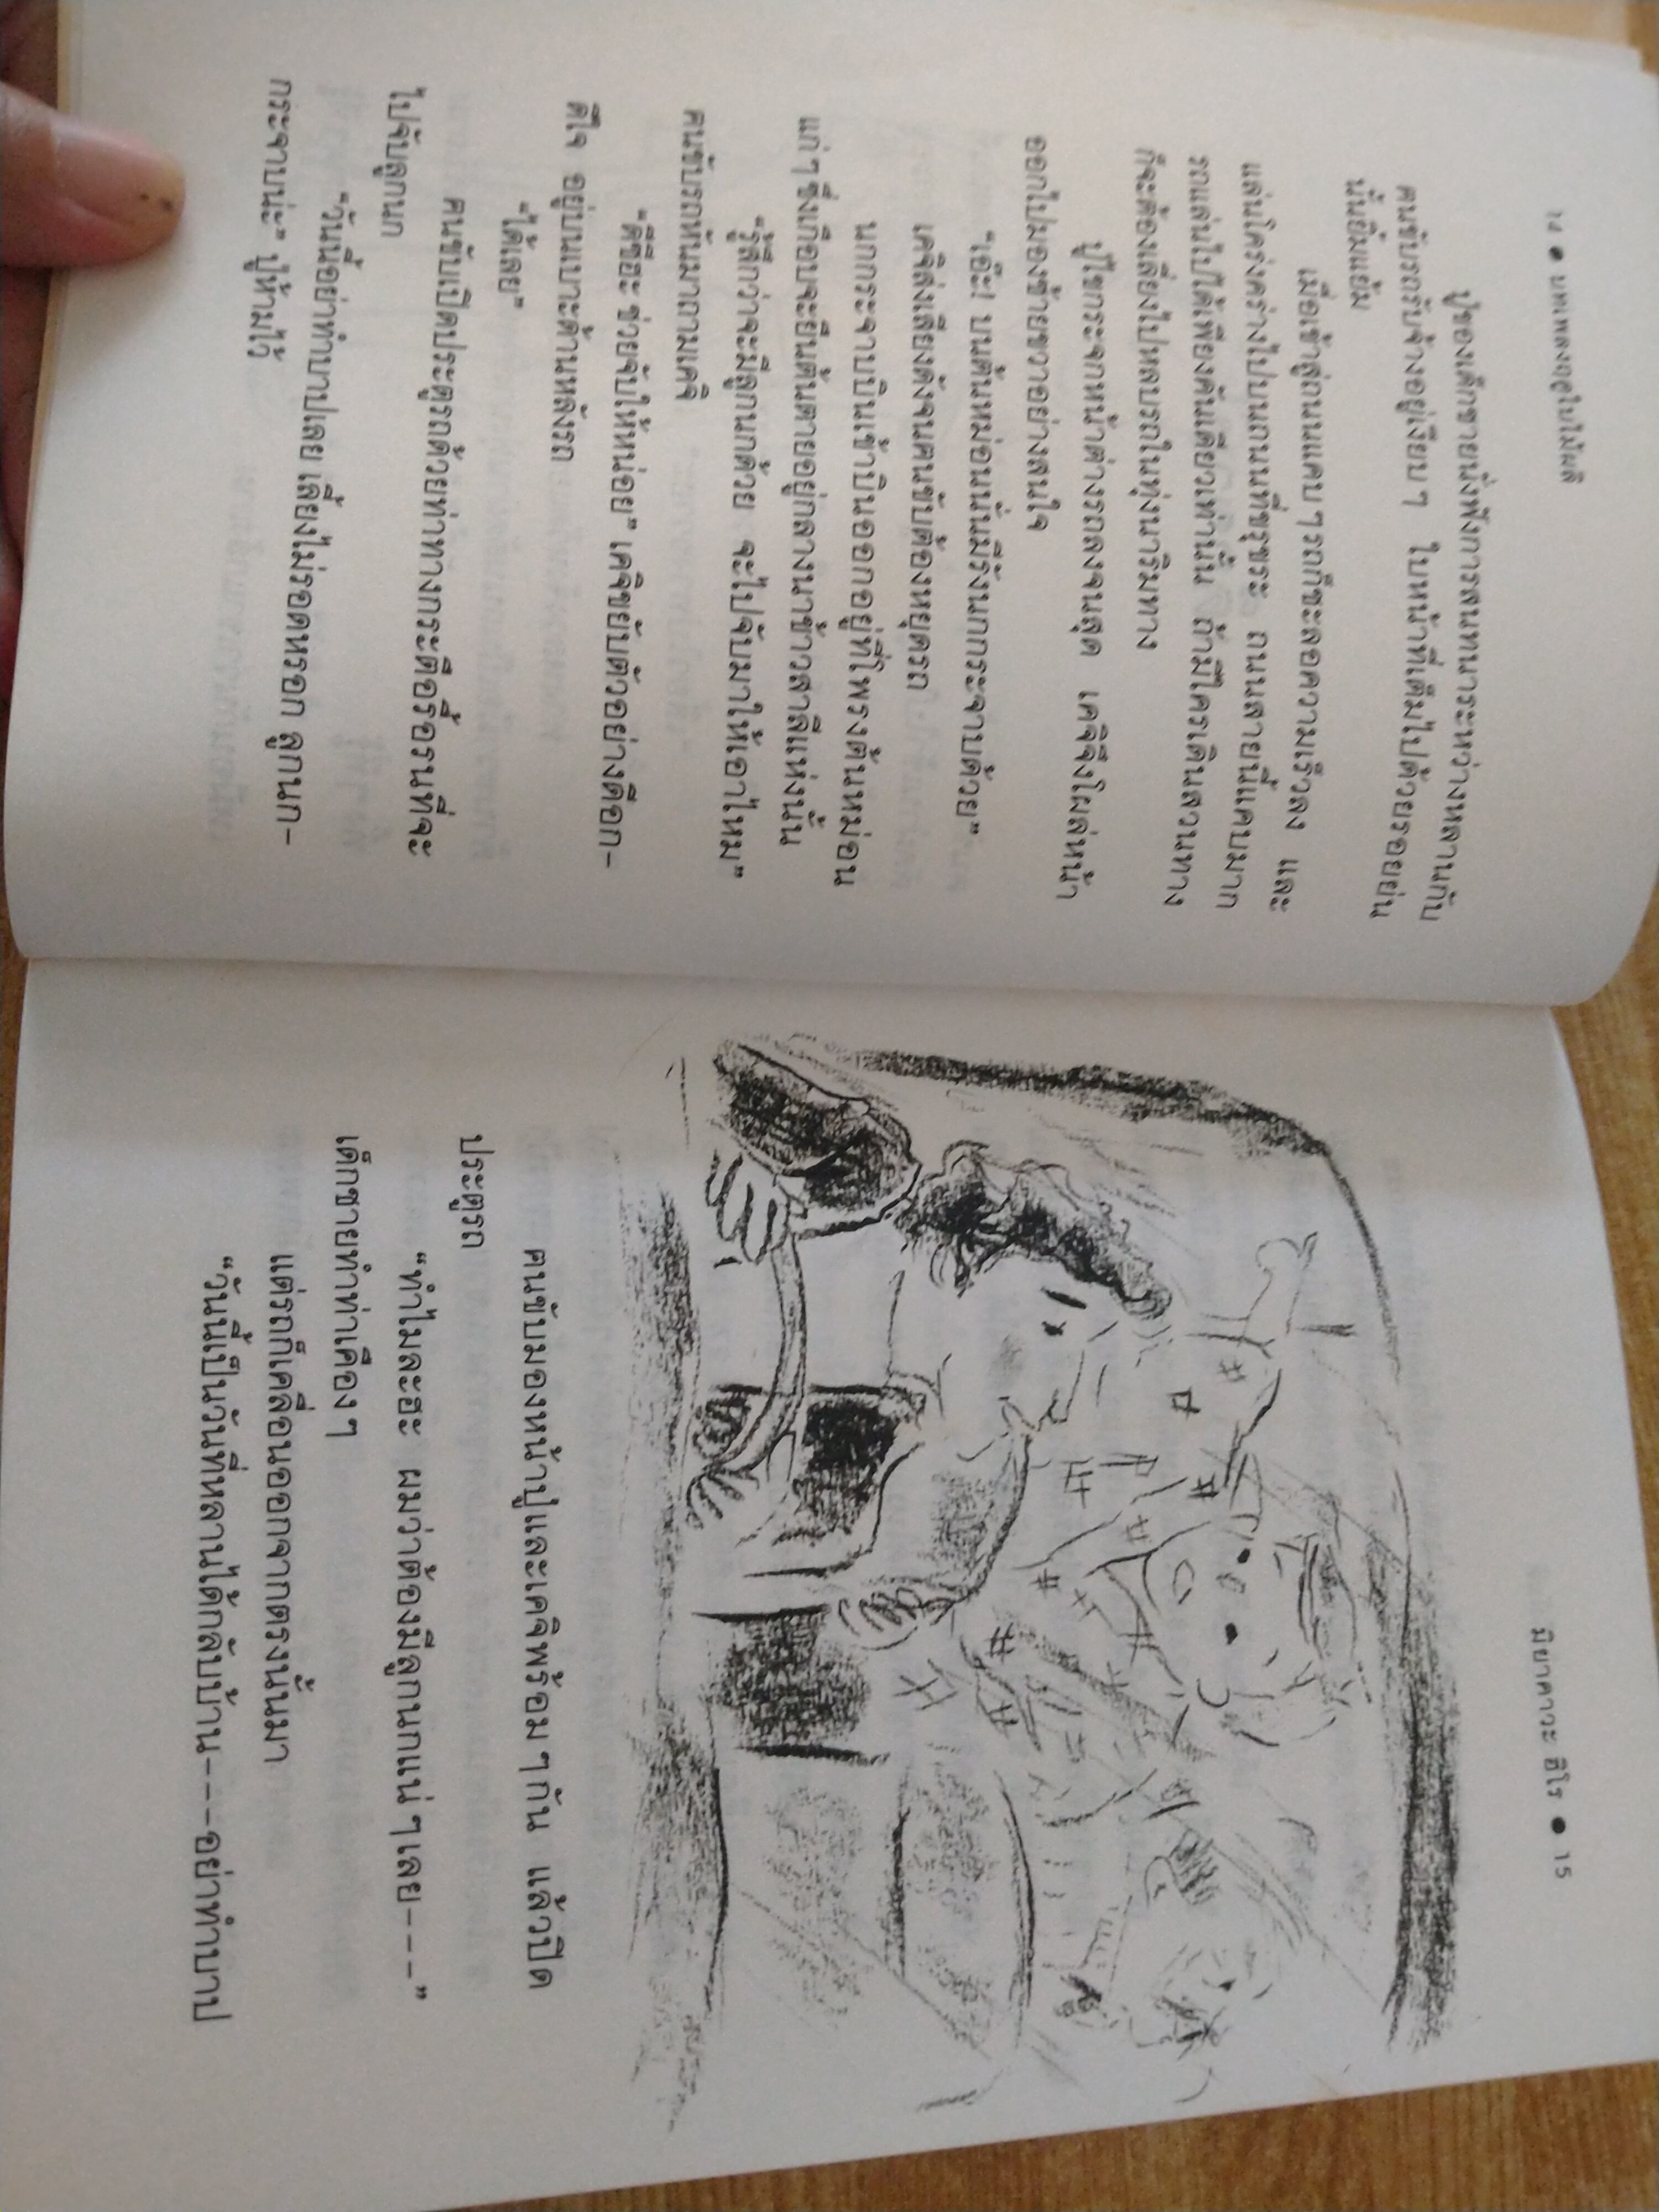 14 ● บทเพลงฤดูใบไม้ผลิ
ปู่ของเด็กชายนั่งฟังการสนทนาระหว่างหลานกับ
คนขับรถรับจ้างอยู่เงียบ ๆ ใบหน้าที่เต็มไปด้วยรอยย่น
นั้นยิ้มแย้ม
เมื่อเข้าสู่ถนนแคบ ๆ รถก็ชะลอความเร็วลง และ
แล่นโคร่งคร่างไปบนถนนที่ขรุขระ ถนนสายนี้แคบมาก
รถแล่นไปได้เพียงคันเดียวเท่านั้น ถ้ามีใครเดินสวนทาง
ก็จะต้องเลี่ยงไปหลบรถในทุ่งนาริมทาง
ปู่ไขกระจกหน้าต่างรถลงจนสุด เคจิจึงโผล่หน้า
ออกไปมองซ้ายขวาอย่างสนใจ
“เอ๊ะ! บนต้นหม่อนนั่นมีรังนกกระจาบด้วย”
เคจิส่งเสียงดังจนคนขับต้องหยุดรถ
นกกระจาบบินเข้าบินออกอยู่ที่โพรงต้นหม่อน
แก่ ๆ ซึ่งเกือบจะยืนต้นตายอยู่กลางนาข้าวสาลีแห่งนั้น
“รู้สึกว่าจะมีลูกนกด้วย จะไปจับมาให้เอาไหม”
คนขับรถหันมาถามเคจิ
“ดีซีฮะ ช่วยจับให้หน่อย” เคจิขยับตัวอย่างดีอก–
ดีใจ อยู่บนเบาะด้านหลังรถ
“ได้เลย”
คนขับเปิดประตูรถด้วยท่าทางกระตือรือรนที่จะ
ไปจับลูกนก
“วันนี้อย่าทำบาปเลย เลี้ยงไม่รอดหรอก ลูกนก–
กระจาบน่ะ” ปู่ห้ามไว้
มิยาคาวะ ฮิโร ● 15
คนขับมองหน้าปู่และเคจิพร้อม ๆ กัน แล้วปิด
ประตูรถ
“ทำไมละฮะ ผมว่าต้องมีลูกนกแน่ ๆ เลย – – –”
เด็กชายทำท่าเคือง ๆ
แต่รถก็เคลื่อนออกจากตรงนั้นมา
“วันนี้เป็นวันที่หลานได้กลับบ้าน – – – อย่าทำบาป